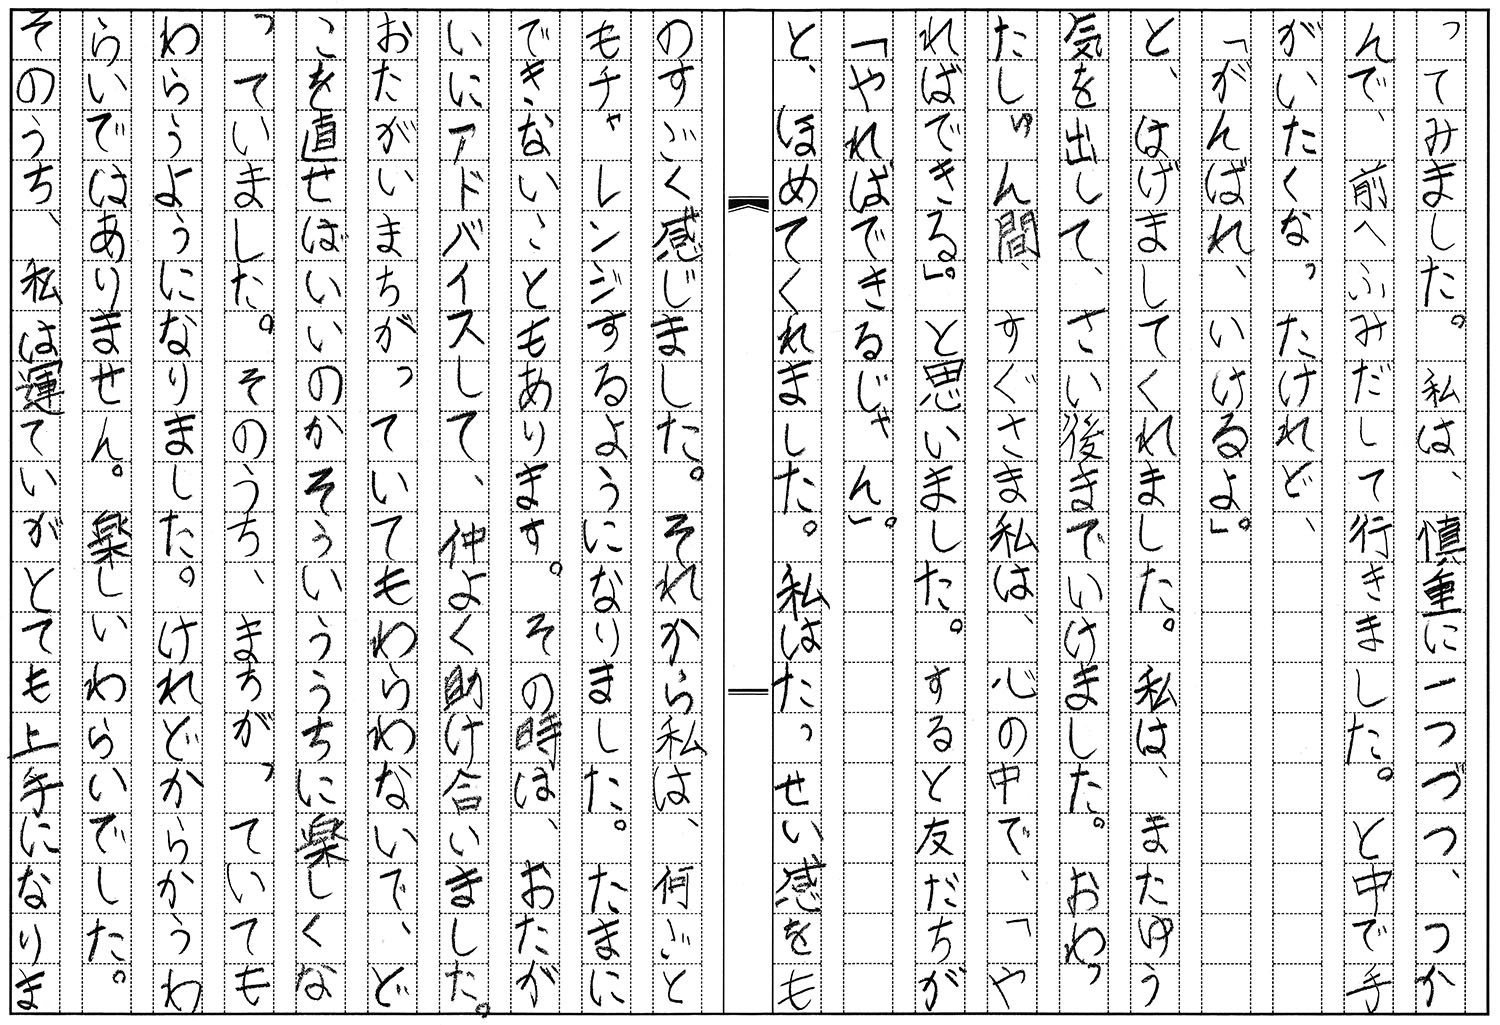 ってみました。私は、慎重に一つづつ、つか
んで、前へふみだして行きました。と中で手
がいたくなったけれど、
「がんばれ、いけるよ」。
と、はげましてくれました。私は、またゆう
気を出して、さい後まいでいけました。おわっ
たしゅん間、すぐさま私は、心の中で、「や
ればできる」。と思いました。すると友だちが
「やればできるじゃん」。
と、ほめてくれました。私はたっせい感をも
のすごく感じました。それから私は、何ごと
もチャレンジするようになりました。たまに
できないこともあります。その時は、おたが
いにアドバイスして、仲よく助け合いました。
おたがいまちがっていてもわらわないで、ど
こを直せばいいのかそういううちに楽しくな
っていました。そのうち、まちがっていても
わらうようになりました。けれどからかうわ
らいではありません。楽しいわらいでした。
そのうち、私は運ていがとても上手になりま